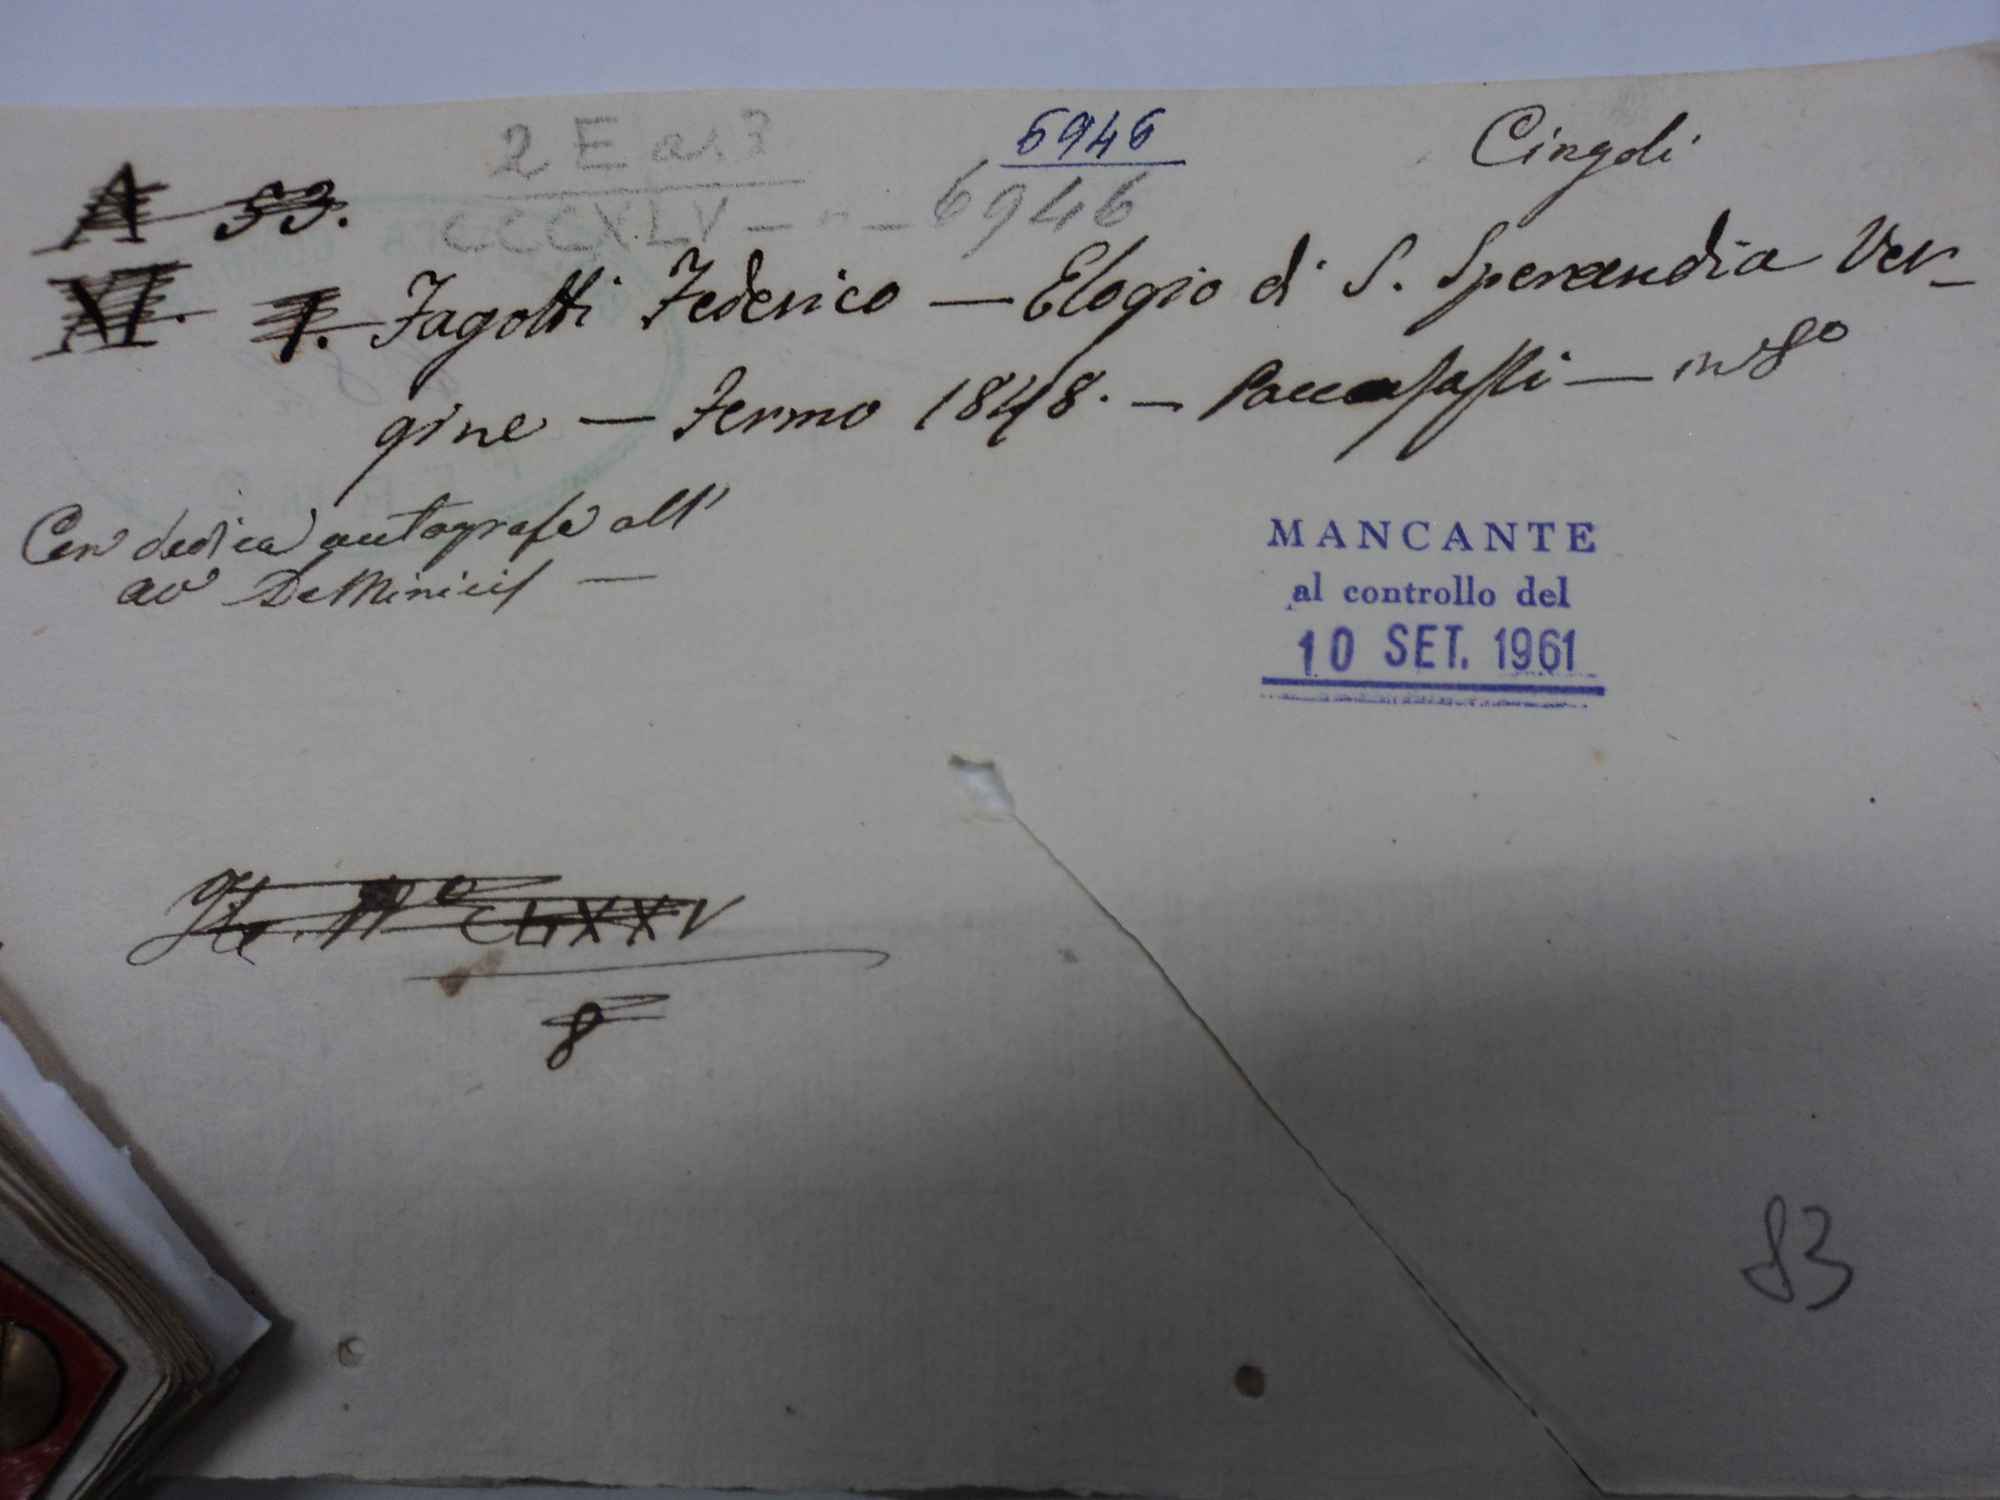 6946
Cingoli
2 E ar. 3
CCCXLV — n — 6946
A 53.
XI. 1. Fagotti Federico — Elogio di S. Sperandia Ver-
gine — Fermo 1848. — Paccasassi — in 8º
Con dedica autografa all'
av DeMinicis —
MANCANTE
al controllo del
10 SET. 1961
CLXXV
8
83